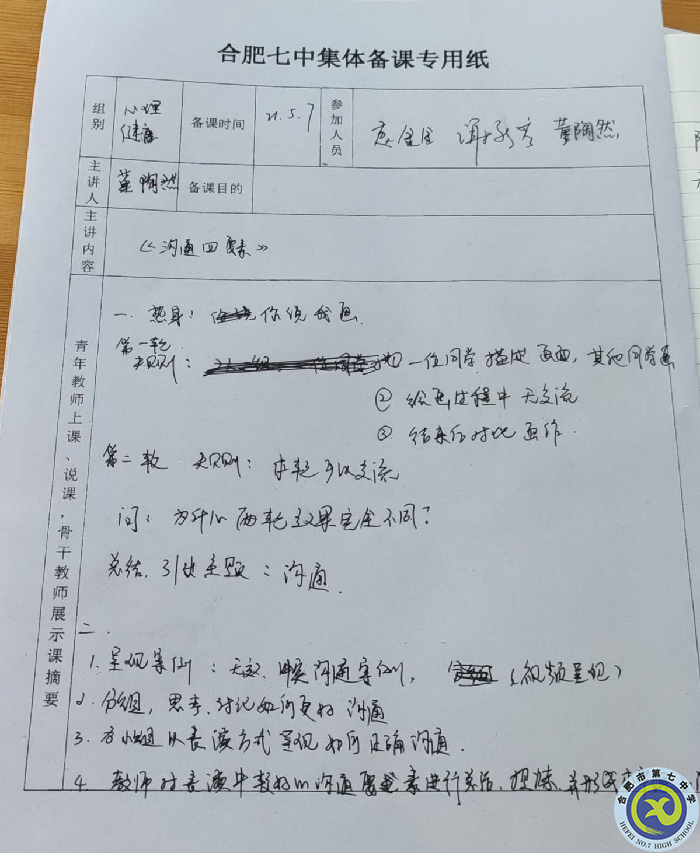 合肥七中集体备课专用纸
组别 心理健康 备课时间 21.5.7 参加人员 黄陶然
主讲人 黄陶然 备课目的
主讲内容 《沟通四要素》
青年教师上课、说课，骨干教师展示课摘要
一. 热身： 你说我画.
第一轮
规则： 一位同学描述画面，其他同学画
② 绘画过程中无交流
③ 结束后对比画作.
第二轮 规则： 本轮可以交流
问： 为什么两轮效果完全不同？
总结. 引出主题： 沟通.
二.
1. 呈现案例： 沟通案例， （视频呈现）
2. 分组，思考、讨论如何更好沟通
3. 各小组以表演方式呈现如何正确沟通.
4. 教师对表演中较好的沟通要素进行总结、提炼，并形成
合肥市第七中学
HEFEI NO.7 HIGH SCHOOL